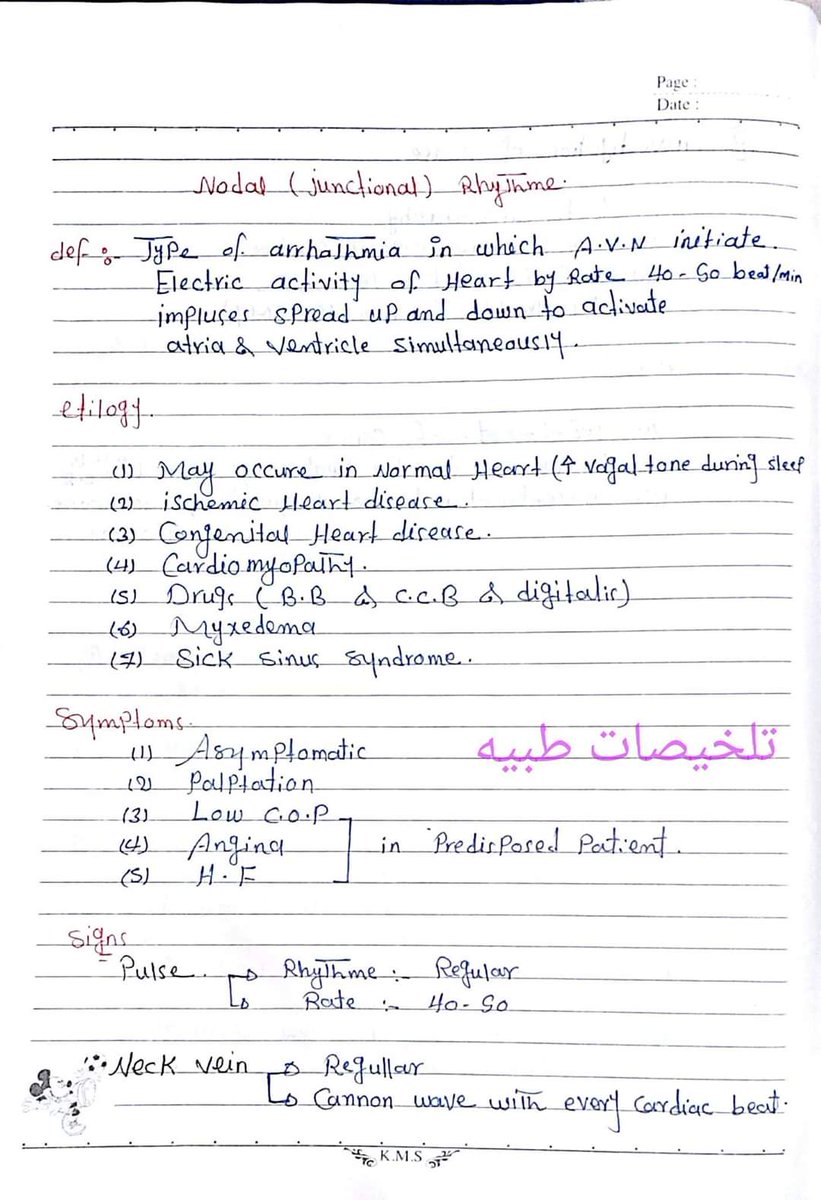 Page :
Date :
Nodal (junctional) Rhythme.
def :- Type of arrhathmia in which A.V.N initiate.
Electric activity of Heart by Rate 40-60 beat/min
impluses spread up and down to activate
atria & ventricle simultaneously.
etilogy.
(1) May occure in Normal Heart (↑ vagal tone during sleep
(2) ischemic Heart disease.
(3) Congenital Heart disease.
(4) Cardiomyopathy.
(5) Drugs (B.B & C.C.B & digitalic)
(6) Myxedema
(7) Sick sinus syndrome.
Symptoms.
(1) Asymptomatic
تلخيصات طبيه
(2) Palptation
(3) Low C.O.P
(4) Angina in Predisposed Patient.
(5) H.F
Signs
- Pulse. Rhythme :- Regular
Rate :- 40-60
Neck vein Regullar
Cannon wave with every cardiac beat.
K.M.S